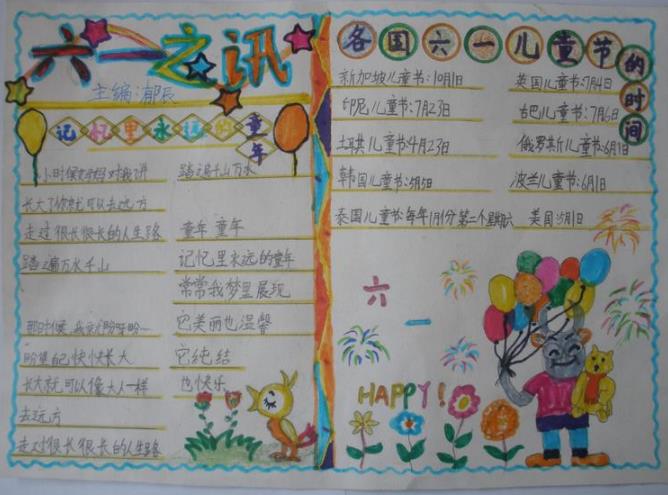 六一之讯
主编:郁辰
记忆里永远的童年
小时候妈妈对我讲
长大了你就可以去远方
走过很长很长的人生路
踏遍万水千山
那时候,我会盼呀盼
盼望自己快快长大
长大就可以像大人一样
去远方
走过很长很长的人生路
踏遍千山万水
童年 童年
记忆里永远的童年
常常我梦里展现
它美丽也温馨
它纯结
也快乐
各国六一儿童节的时间
新加坡儿童节:10月1日 英国儿童节:7月4日
印尼儿童节:7月23日 古巴儿童节:7月6日
土耳其儿童节4月23日 俄罗斯儿童节:6月1日
韩国儿童节:5月5日 波兰儿童节:6月1日
泰国儿童节:每年1月份第二个星期六 美国:5月1日
六一
HAPPY!